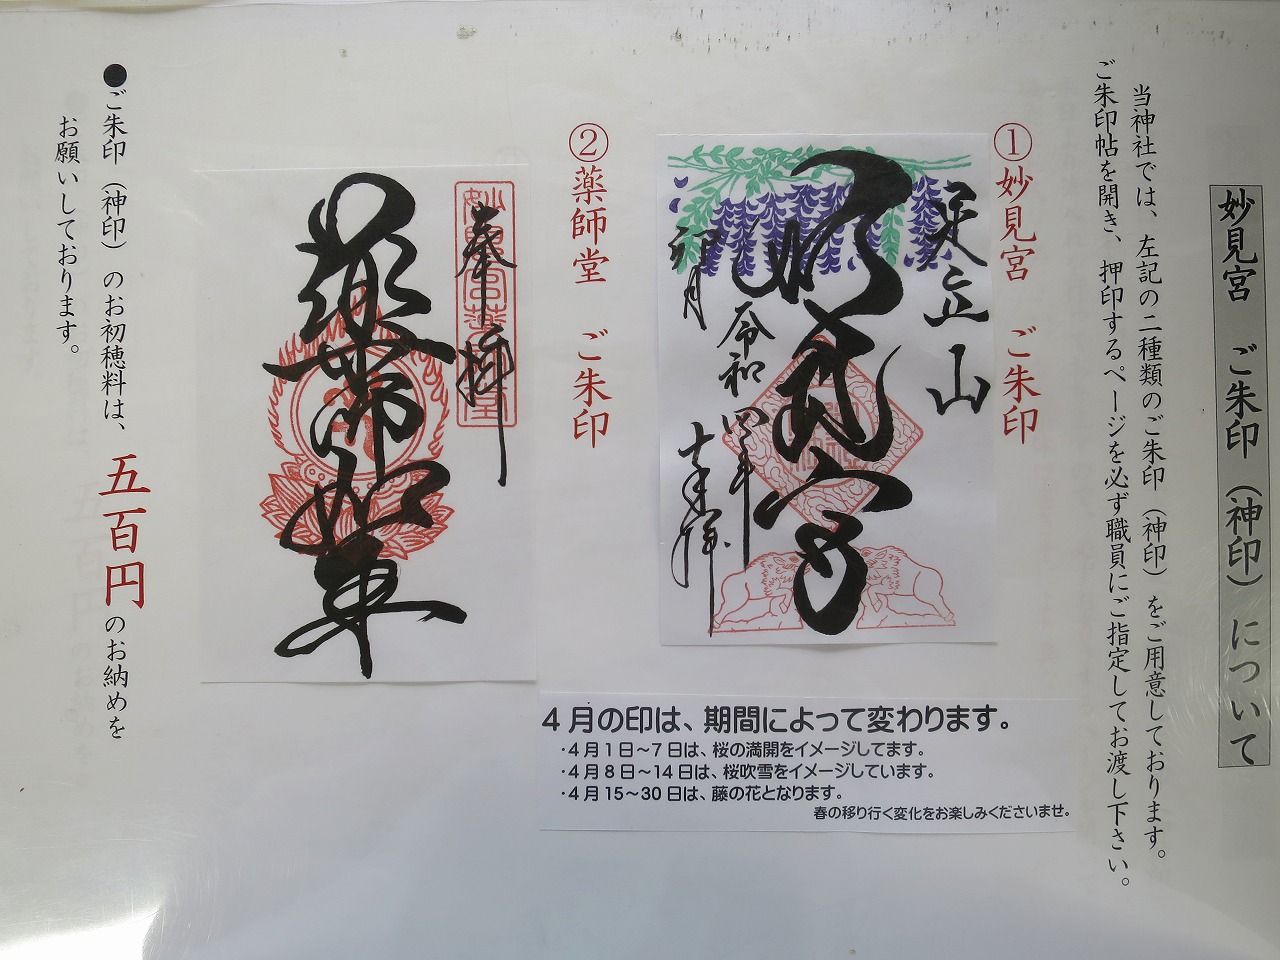 妙見宮 ご朱印（神印）について
当神社では、左記の二種類のご朱印（神印）をご用意しております。
ご朱印帖を開き、押印するページを必ず職員にご指定してお渡し下さい。
①妙見宮 ご朱印
足立山
妙見宮
令和四年
卯月
②薬師堂 ご朱印
奉拝
薬師如来
4月の印は、期間によって変わります。
・4月1日～7日は、桜の満開をイメージしてます。
・4月8日～14日は、桜吹雪をイメージしています。
・4月15～30日は、藤の花となります。
春の移り行く変化をお楽しみくださいませ。
●ご朱印（神印）のお初穂料は、五百円のお納めを
お願いしております。